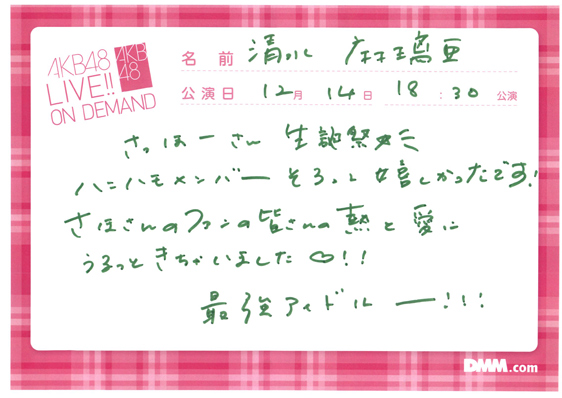 AKB48
LIVE!!
ON DEMAND
AKB
48
名 前 清水 麻璃亜
公演日 12月 14日 18 : 30 公演
さっほーさん 生誕祭☆彡
ハニハモメンバー そろって嬉しかったです!
さほさんのファンの皆さんの熱と愛に
うるっときちゃいました♡!!
最強アイドルー!!!
DMM.com